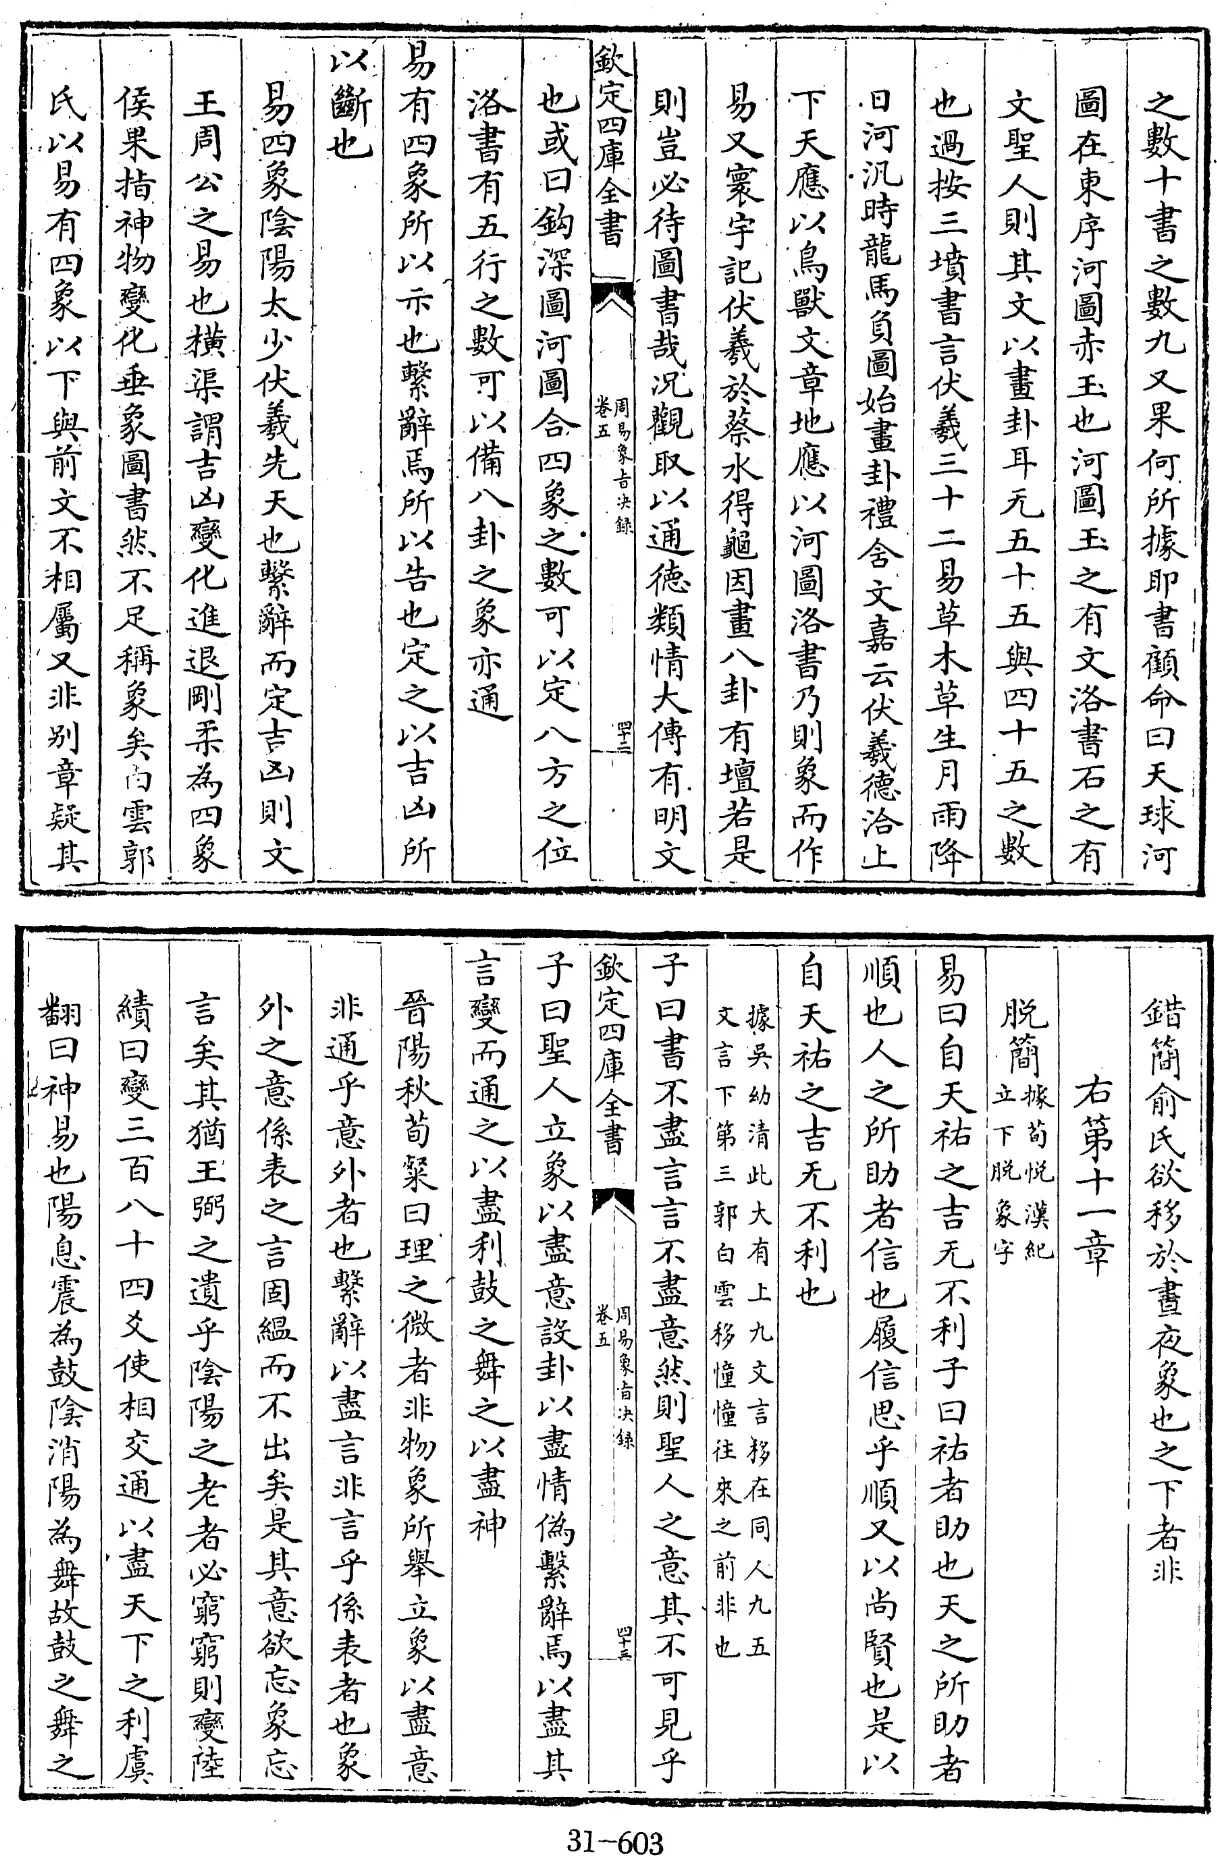 之數十書之數九又果何所據即書顧命曰天球河
圖在東序河圖赤玉也河圖玉之有文洛書石之有
文聖人則其文以畫卦耳无五十五與四十五之數
也過按三墳書言伏羲三十二易草木草生月雨降
日河汎時龍馬負圖始畫卦禮含文嘉云伏羲德洽上
下天應以鳥獸文章地應以河圖洛書乃則象而作
易又寰宇記伏羲於蔡水得龜因畫八卦有壇若是
則豈必待圖書哉况觀取以通德類情大傳有明文
欽定四庫全書
周易象旨决録
卷五
四十二
也或曰鈎深圖河圖合四象之數可以定八方之位
洛書有五行之數可以備八卦之象亦通
易有四象所以示也繫辭焉所以告也定之以吉凶所
以斷也
易四象陰陽太少伏羲先天也繫辭而定吉凶則文
王周公之易也橫渠謂吉凶變化進退剛柔為四象
侯果指神物變化垂象圖書然不足稱象矣白雲郭
氏以易有四象以下與前文不相屬又非别章疑其
錯簡俞氏欲移於晝夜象也之下者非
右第十一章
脱簡據荀悦漢紀
立下脱象字
易曰自天祐之吉无不利子曰祐者助也天之所助者
順也人之所助者信也履信思乎順又以尚賢也是以
自天祐之吉无不利也
據吳幼清此大有上九文言移在同人九五
文言下第三郭白雲移憧憧往來之前非也
子曰書不盡言言不盡意然則聖人之意其不可見乎
欽定四庫全書
周易象旨决録
卷五
四十三
子曰聖人立象以盡意設卦以盡情偽繫辭焉以盡其
言變而通之以盡利鼓之舞之以盡神
晉陽秋荀粲曰理之微者非物象所舉立象以盡意
非通乎意外者也繫辭以盡言非言乎係表者也象
外之意係表之言固緼而不出矣是其意欲忘象忘
言矣其猶王弼之遺乎陰陽之老者必窮窮則變陸
績曰變三百八十四爻使相交通以盡天下之利虞
翻曰神易也陽息震為鼓陰消陽為舞故鼓之舞之
31-603